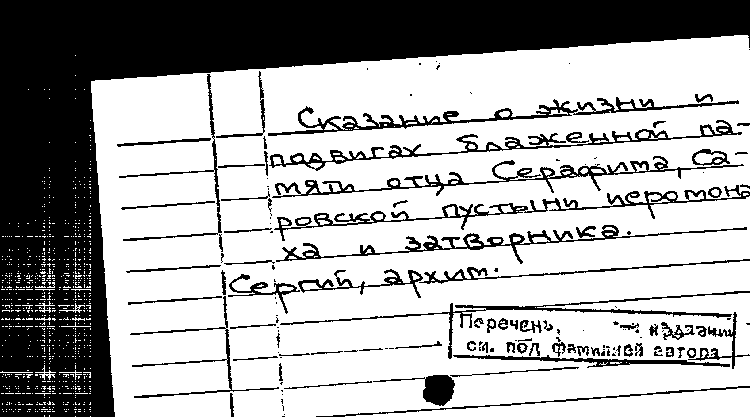 Сказание о жизни и
подвигах блаженной па-
мяти отца Серафима, Са-
ровской пустыни иеромона
ха и затворника.
Сергий, архим.
Перечень, изданий
см. под фамилией автора